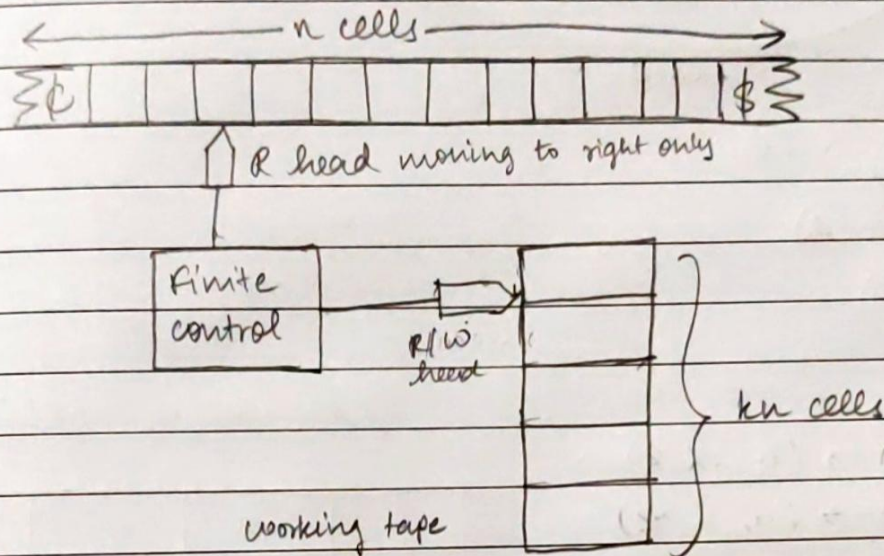 n cells
¢ $
R head moving to right only
Finite
control
R/W
head
kn cells
working tape